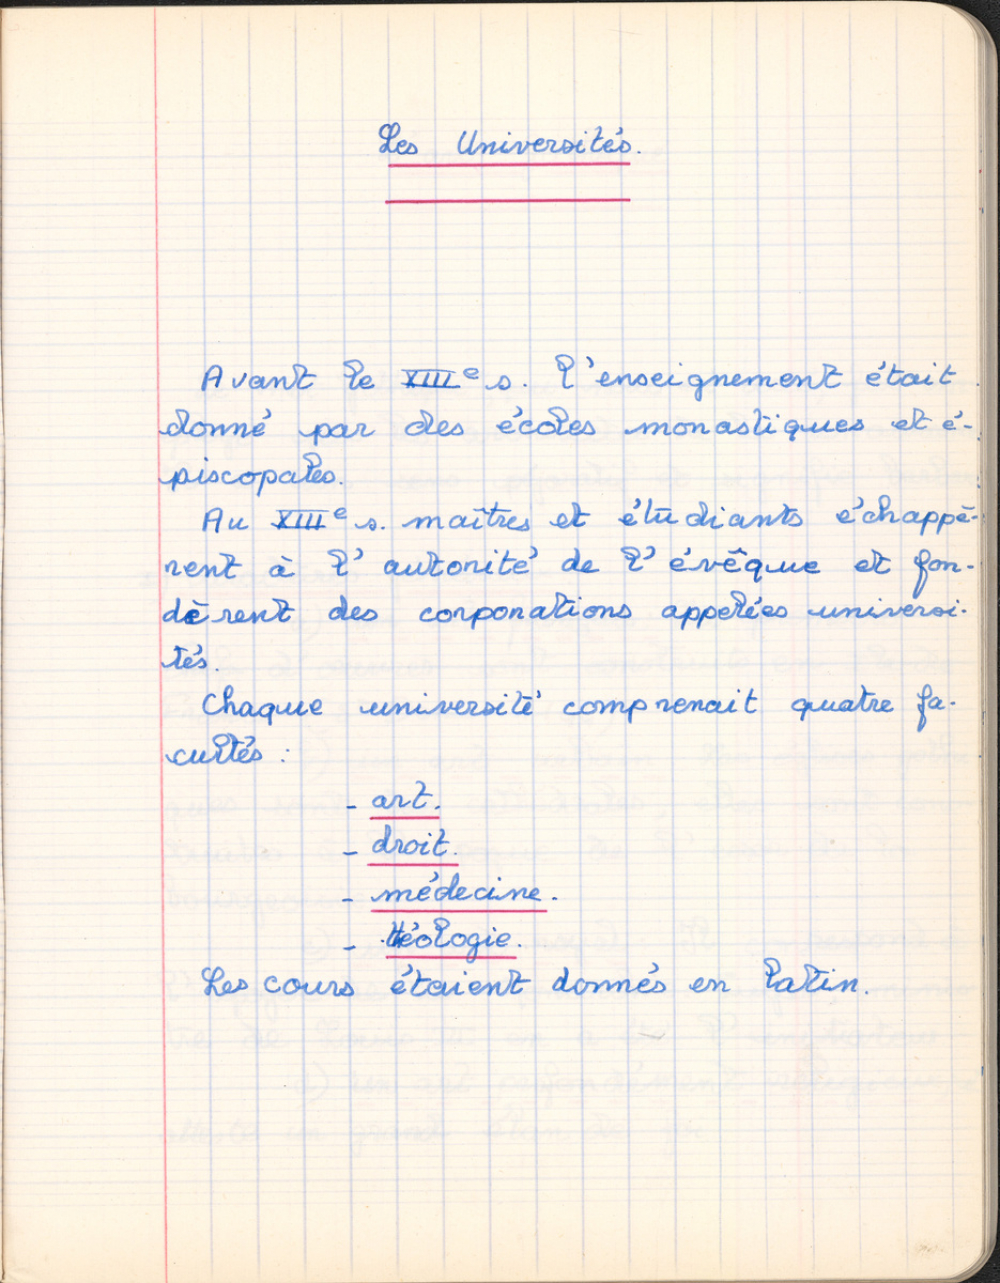 Les Universités.
Avant le XIIIe s. l'enseignement était
donné par des écoles monastiques et é-
piscopales.
Au XIIIe s. maîtres et étudiants échappè-
rent à l'autorité de l'évêque et fon-
dèrent des corporations appelées universi-
tés.
Chaque université comprenait quatre fa-
cultés :
- art.
- droit.
- médecine.
- téologie.
Les cours étaient donnés en latin.